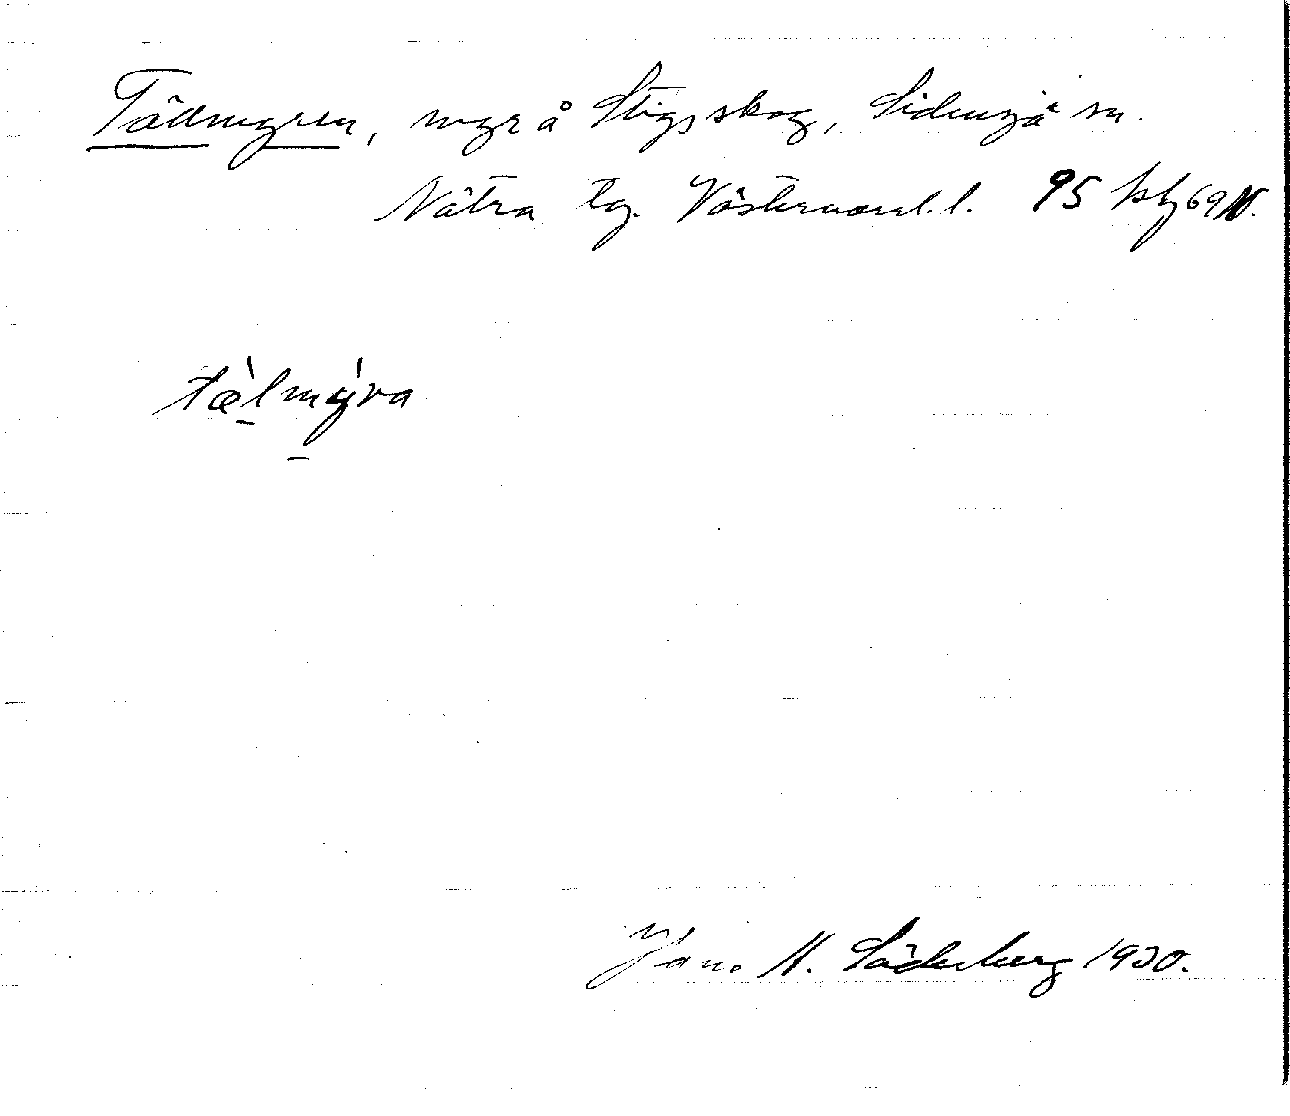 Tällmyren, myr å Stigsskog, Sidensjö sn.
Nätra tg. Västernorrl.l. 95 kbl 69 N.
tælmýra
Joh. N. Söderberg 1930.